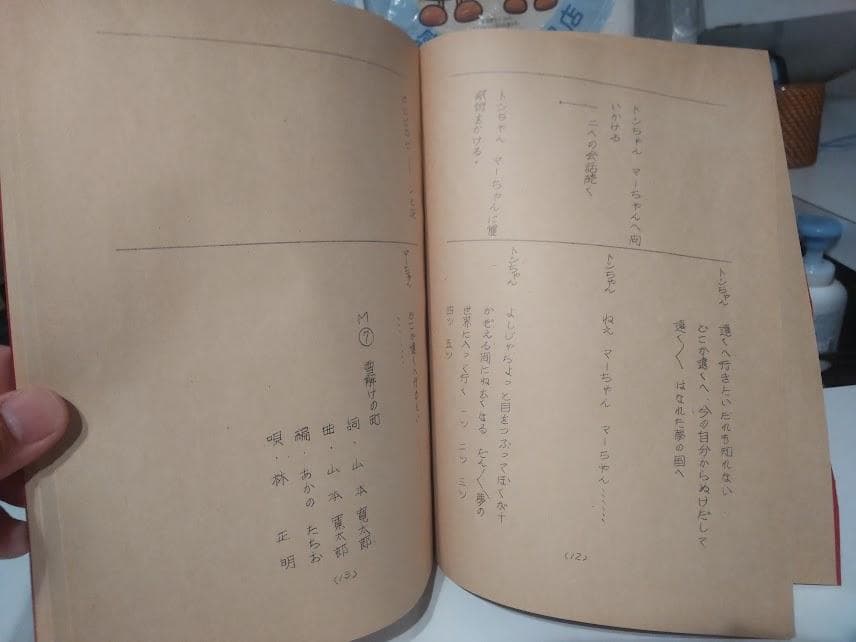 トンちゃん マーちゃんへ向
いかける
二人の会話続く
トンちゃん マーちゃんに催
眠術をかける。
トンちゃん 遠くへ行きたいだれも知れない
どこか遠くへ、今の自分からぬけだして
遠く〱 はなれた夢の国へ
トンちゃん ねえ マーちゃん マーちゃん……
トンちゃん よしじゃちょっと目をつぶってぼくが十
かぞえる間にねむくなる だん〱夢の
世界に入って行く 一ツ 二ツ 三ツ
四ツ 五ツ
(12)
マーちゃん どこか遠くへ行きたい
M⑦ 雪解けの町
詞・山本寛太郎
曲・山本寛太郎
編・あかの たちお
唄・林 正明
(13)
店